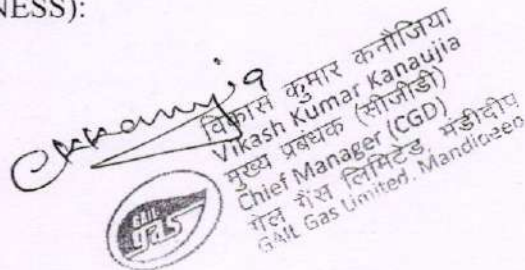 NESS):
विकास कुमार कनौजिया
Vikash Kumar Kanaujia
मुख्य प्रबंधक (सीजीडी)
Chief Manager (CGD)
गेल गैस लिमिटेड, मंडीदीप
GAIL Gas Limited, Mandideep
GAIL
gas